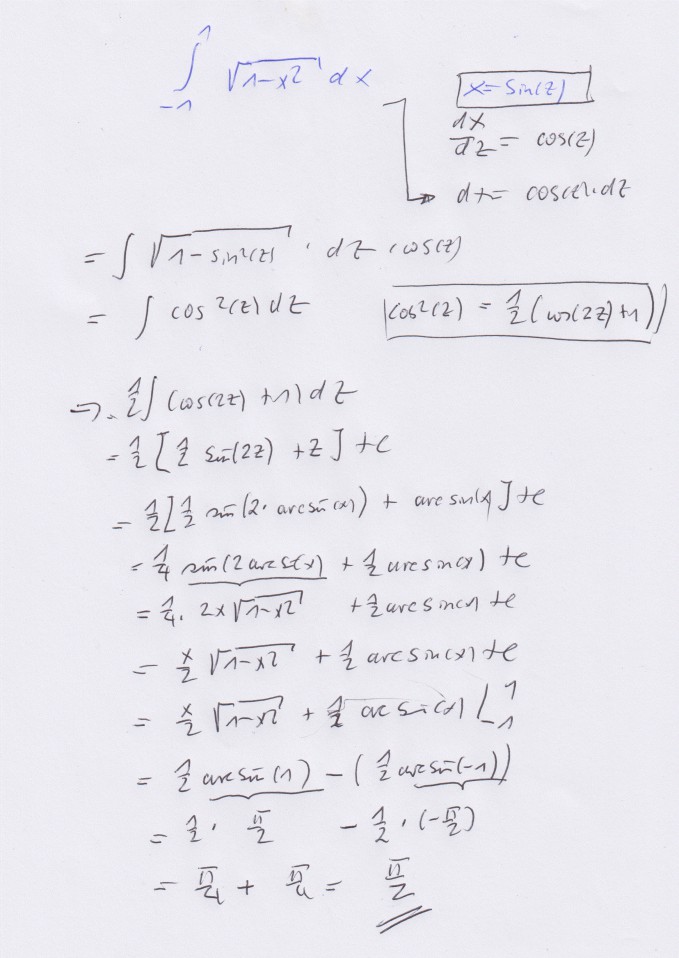 ∫₋₁¹ √(1-x²) dx
x = sin(z)
dx/dz = cos(z)
→ dx = cos(z)·dz
= ∫ √(1-sin²(z)) · dz · cos(z)
= ∫ cos²(z) dz
cos²(z) = 1/2 (cos(2z)+1)
⇒ 1/2 ∫ (cos(2z) +1) dz
= 1/2 [1/2 sin(2z) + z] + c
= 1/2 [1/2 sin(2·arcsin(x)) + arcsin(x)] + c
= 1/4 sin(2 arcs(x) + 1/2 arcsin(x) + c
= 1/4 · 2x √(1-x²) + 1/2 arcsin(x) + c
= x/2 √(1-x²) + 1/2 arcsin(x) + c
= x/2 √(1-x²) + 1/2 arcsin(x) |₋₁¹
= 1/2 arcsin(1) - (1/2 arcsin(-1))
= 1/2 · π/2 - 1/2 · (-π/2)
= π/4 + π/4 = π/2